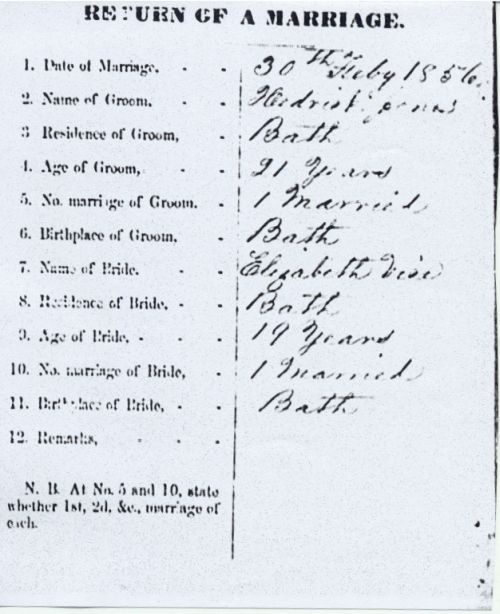 RETURN OF A MARRIAGE.
1. Date of Marriage, - - 30th Feby 1856
2. Name of Groom, - - Hedrick Jones
3 Residence of Groom, - Bath
4. Age of Groom, - - 21 Years
5. No. marriage of Groom. - 1 Married
6. Birthplace of Groom, - Bath
7. Name of Bride. - - Elizabeth Vise
8. Residence of Bride, - - Bath
9. Age of Bride, - - - 19 Years
10. No. marriage of Bride, - 1 Married
11. Birthplace of Bride, - - Bath
12. Remarks, - - -
N. B. At No. 5 and 10, state
whether 1st, 2d, &c., marriage of
each.